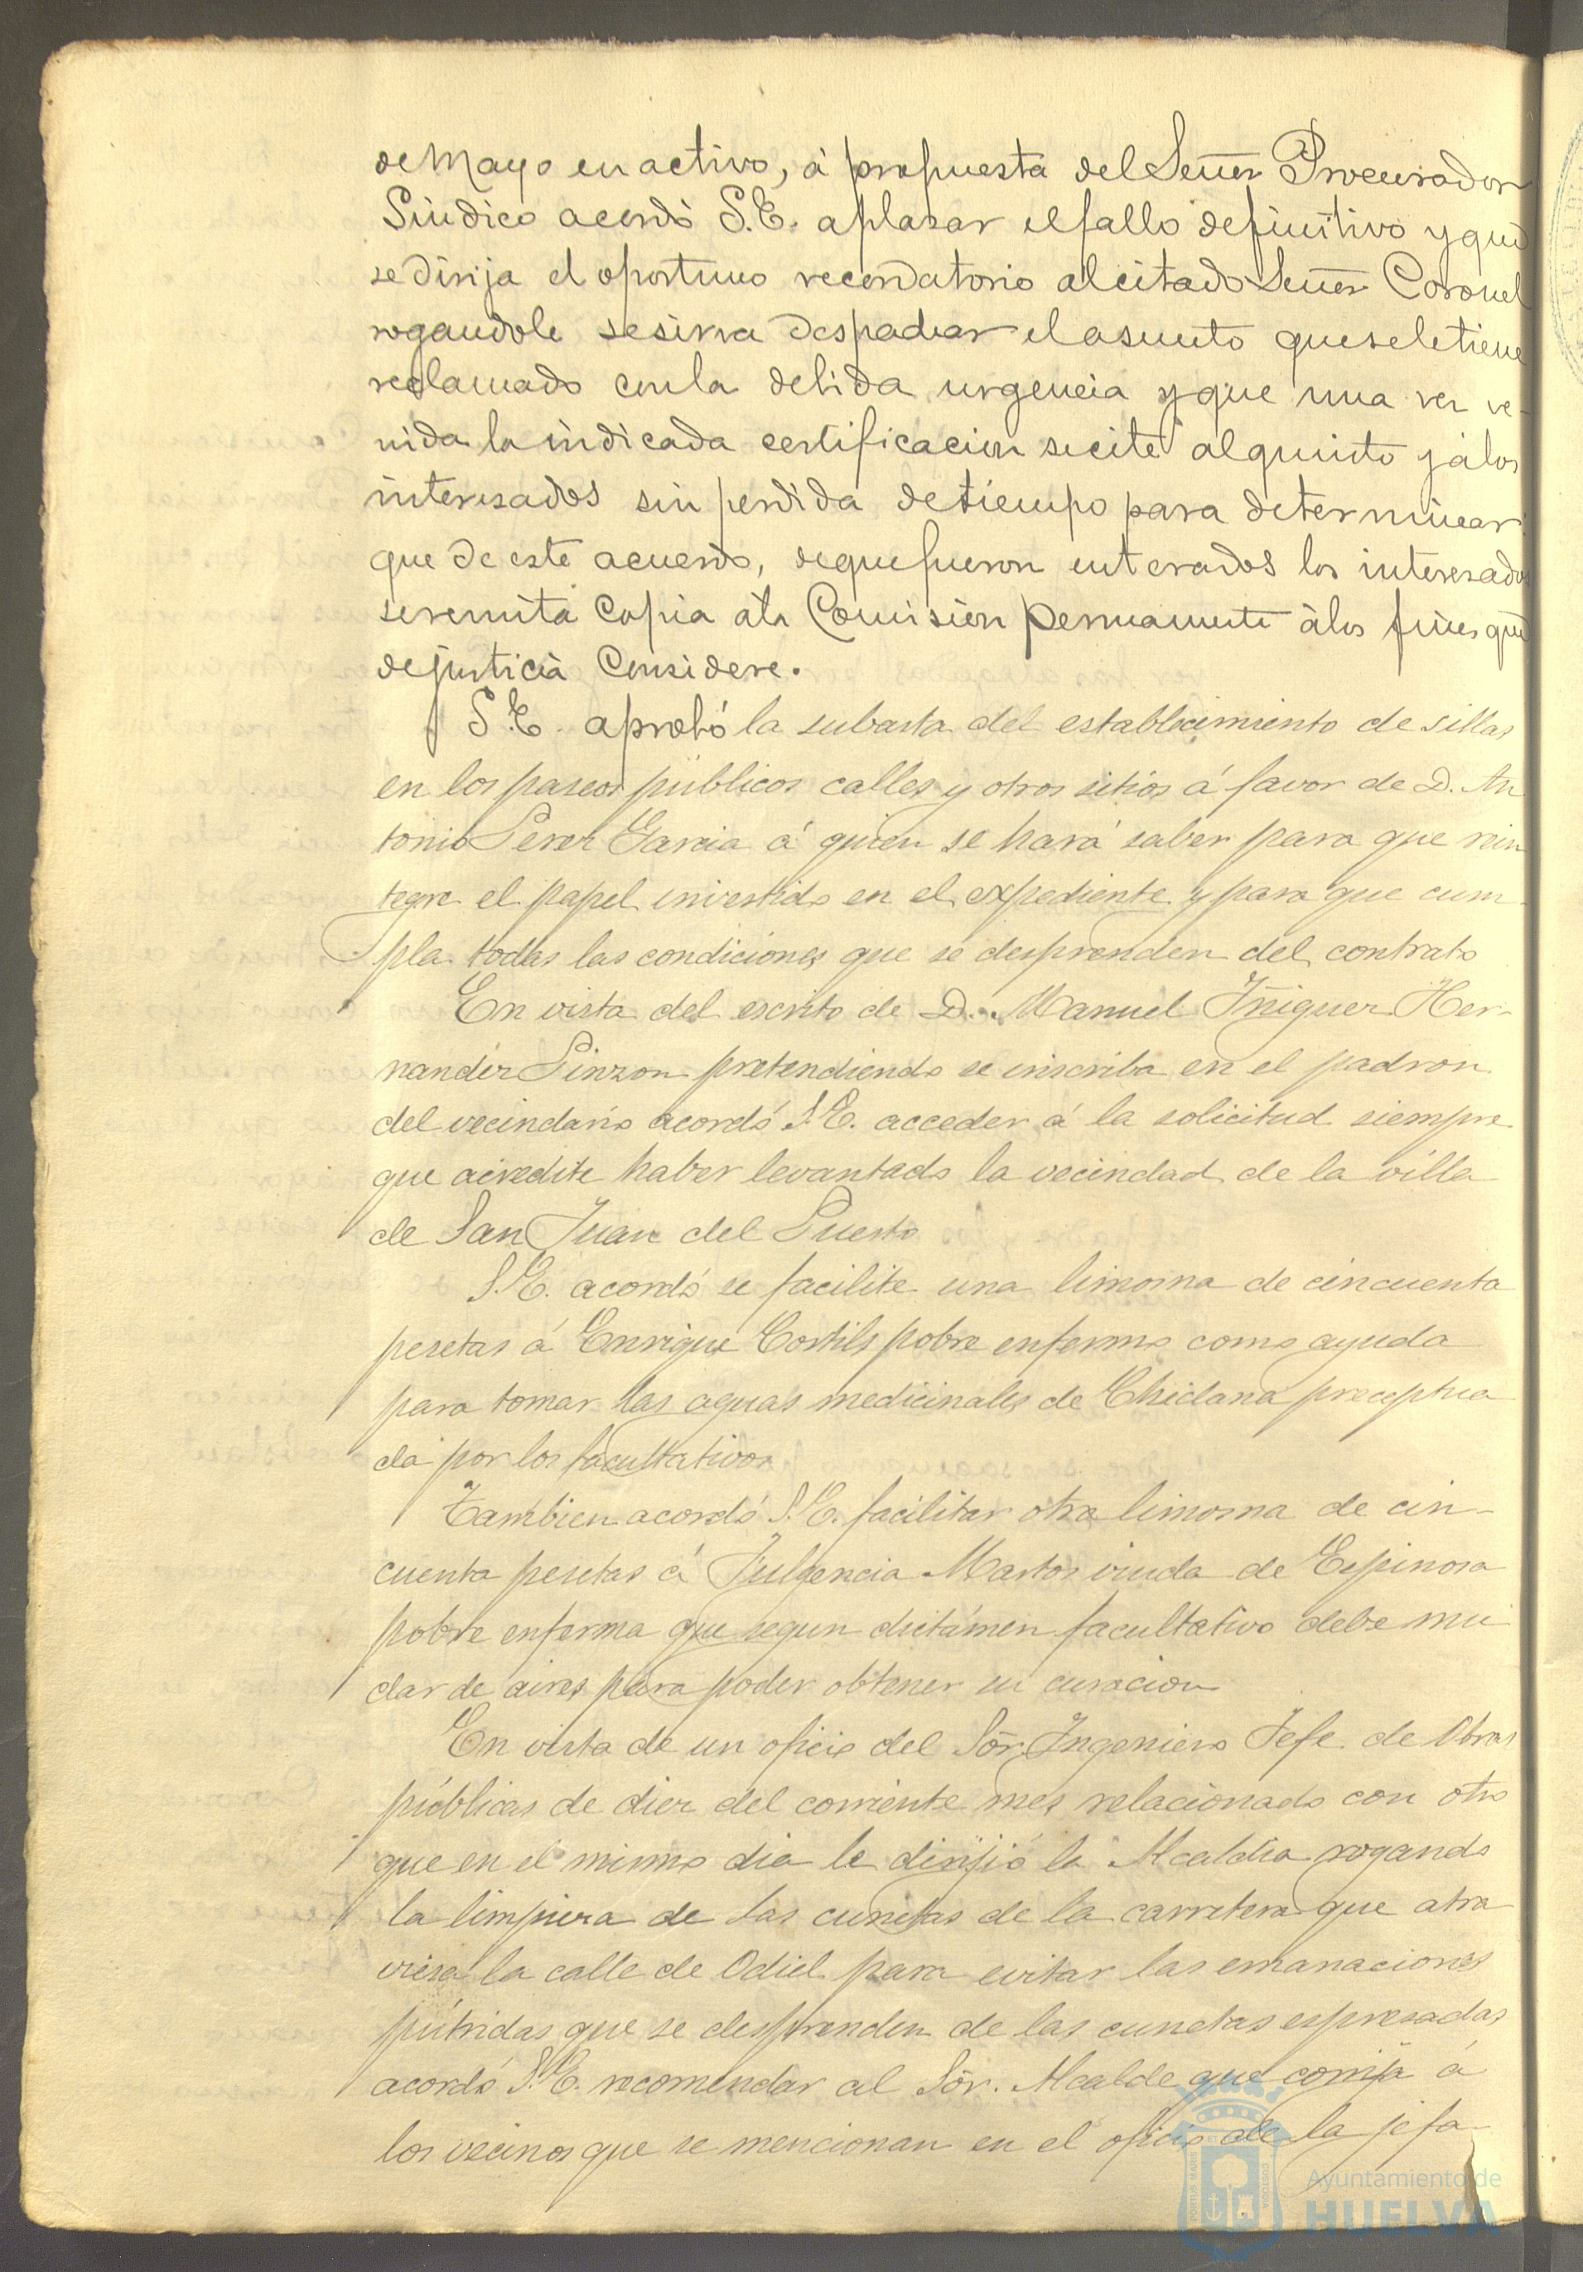 de Mayo en activo, á propuesta del Señor Procurador
Síndico acordó S.E. aplazar el fallo definitivo y que
se dirija el oportuno recordatorio al citado Señor Coronel
rogandole se sirva despachar el asunto que se le tiene
reclamado con la debida urgencia y que una vez ve-
nida la indicada certificacion se cite al quinto y á los
interesados sin perdida de tiempo para determinar
que de este acuerdo, de que fueron enterados los interesados
se remita copia á la Comision permanente á los fines que
de justicia considere.
S.E. aprobó la subasta del establecimiento de sillas
en los paseos públicos calles y otros sitios á favor de D. An
tonio Perez Garcia á quien se hará saber para que rein
tegre el papel invertido en el expediente y para que cum
pla todas las condiciones que se desprenden del contrato
En vista del escrito de D. Manuel Iñiguez Her-
nandez Pinzon pretendiendo se inscriba en el padron
del vecindario acordó S.E. acceder á la solicitud siempre
que acredite haber levantado la vecindad de la villa
de San Juan del Puerto
S.E. acordó se facilite una limosna de cincuenta
pesetas á Enrique Cortils pobre enfermo como ayuda
para tomar las aguas medicinales de Chiclana preceptua
da por los facultativos
Tambien acordó S.E. facilitar otra limosna de cin-
cuenta pesetas á Fulgencia Martos viuda de Espinosa
pobre enferma que segun dictámen facultativo debe mu
dar de aires para poder obtener su curacion
En vista de un oficio del Sõr Ingeniero Jefe de Obras
públicas de diez del corriente mes relacionado con otro
que en el mismo dia le dirijió la Alcaldia rogando
la limpieza de las cunetas de la carretera que atra
viesa la calle de Odiel para evitar las emanaciones
pútridas que se desprenden de las cunetas espresadas
acordó S.E. recomendar al Sõr. Alcalde que corrija á
los vecinos que se mencionan en el oficio de la jefa-
Ayuntamiento de
HUELVA